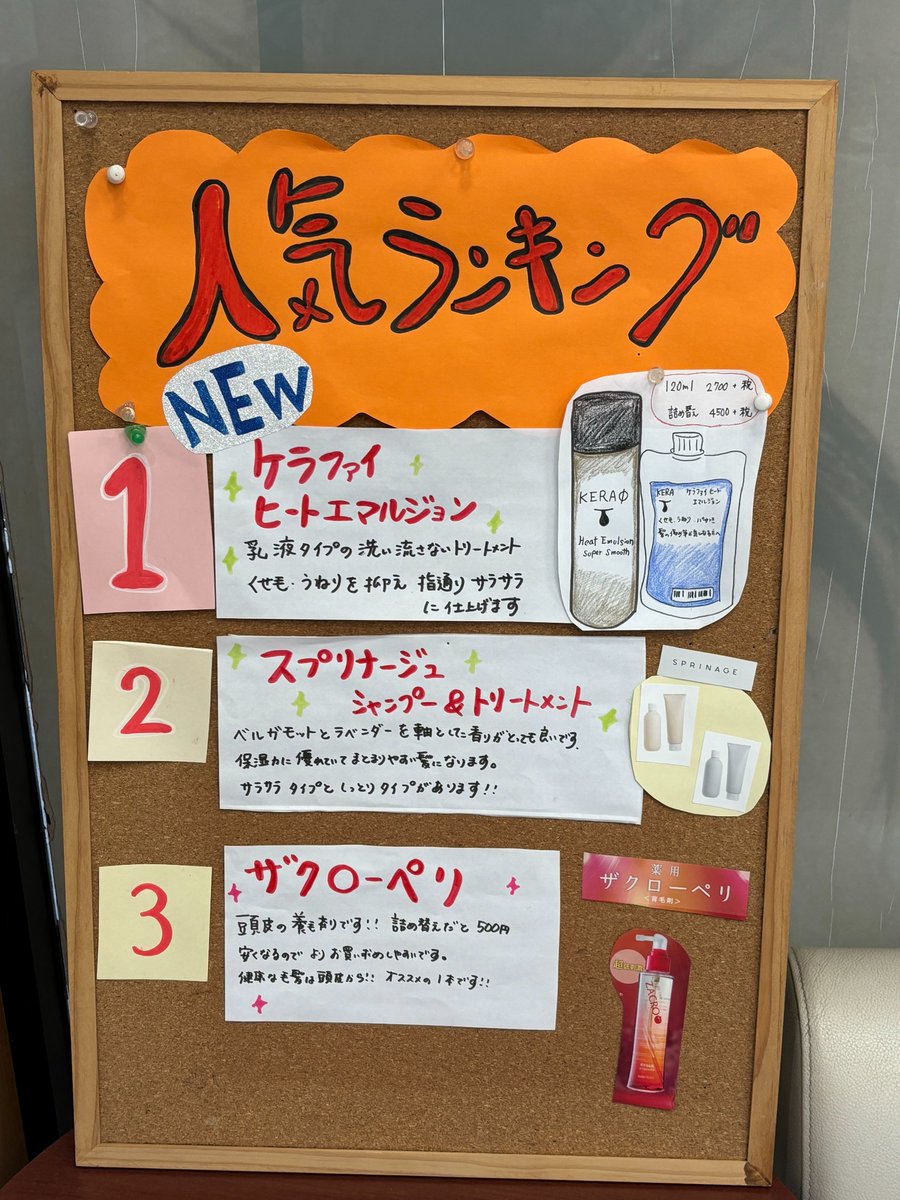 人気ランキング
NEW
120ml 2700+税
詰め替え 4500+税
1
ケラファイ
ヒートエマルジョン
乳液タイプの洗い流さないトリートメント
くせ毛・うねりを抑え 指通り サラサラ
に仕上げます
KERAΦ
Heat Emulsion
Super Smooth
KERA ケラファイ ヒート
エマルジョン
くせ毛・うねり・パサつき
2
スプリナージュ
シャンプー&トリートメント
ベルガモットとラベンダーを軸とした香りがとっても良いです。
保湿力に優れていてまとまりやすい髪になります。
サラサラタイプとしっとりタイプがあります!!
SPRINAGE
3
ザクローペリ
頭皮の養毛剤です!! 詰め替えだと 500円
安くなるので よりお買い求めしやすいです。
健康な毛髪は頭皮から!! オススメの1本です!!
薬用
ザクローペリ
<育毛剤>
ZACRO